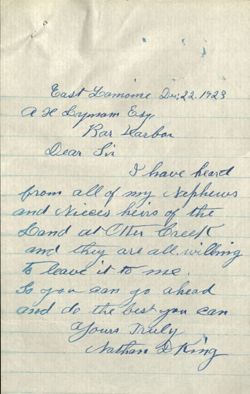 East Lamoine Dec. 22. 1923
A H Lynam Esq
Bar Harbor
Dear Sir
I have heard
from all of my Nephews
and Nieces heirs of the
Land at Otter Creek
and they are all willing
to leave it to me.
So you can go ahead
and do the best you can
Yours Truly
Nathan D King